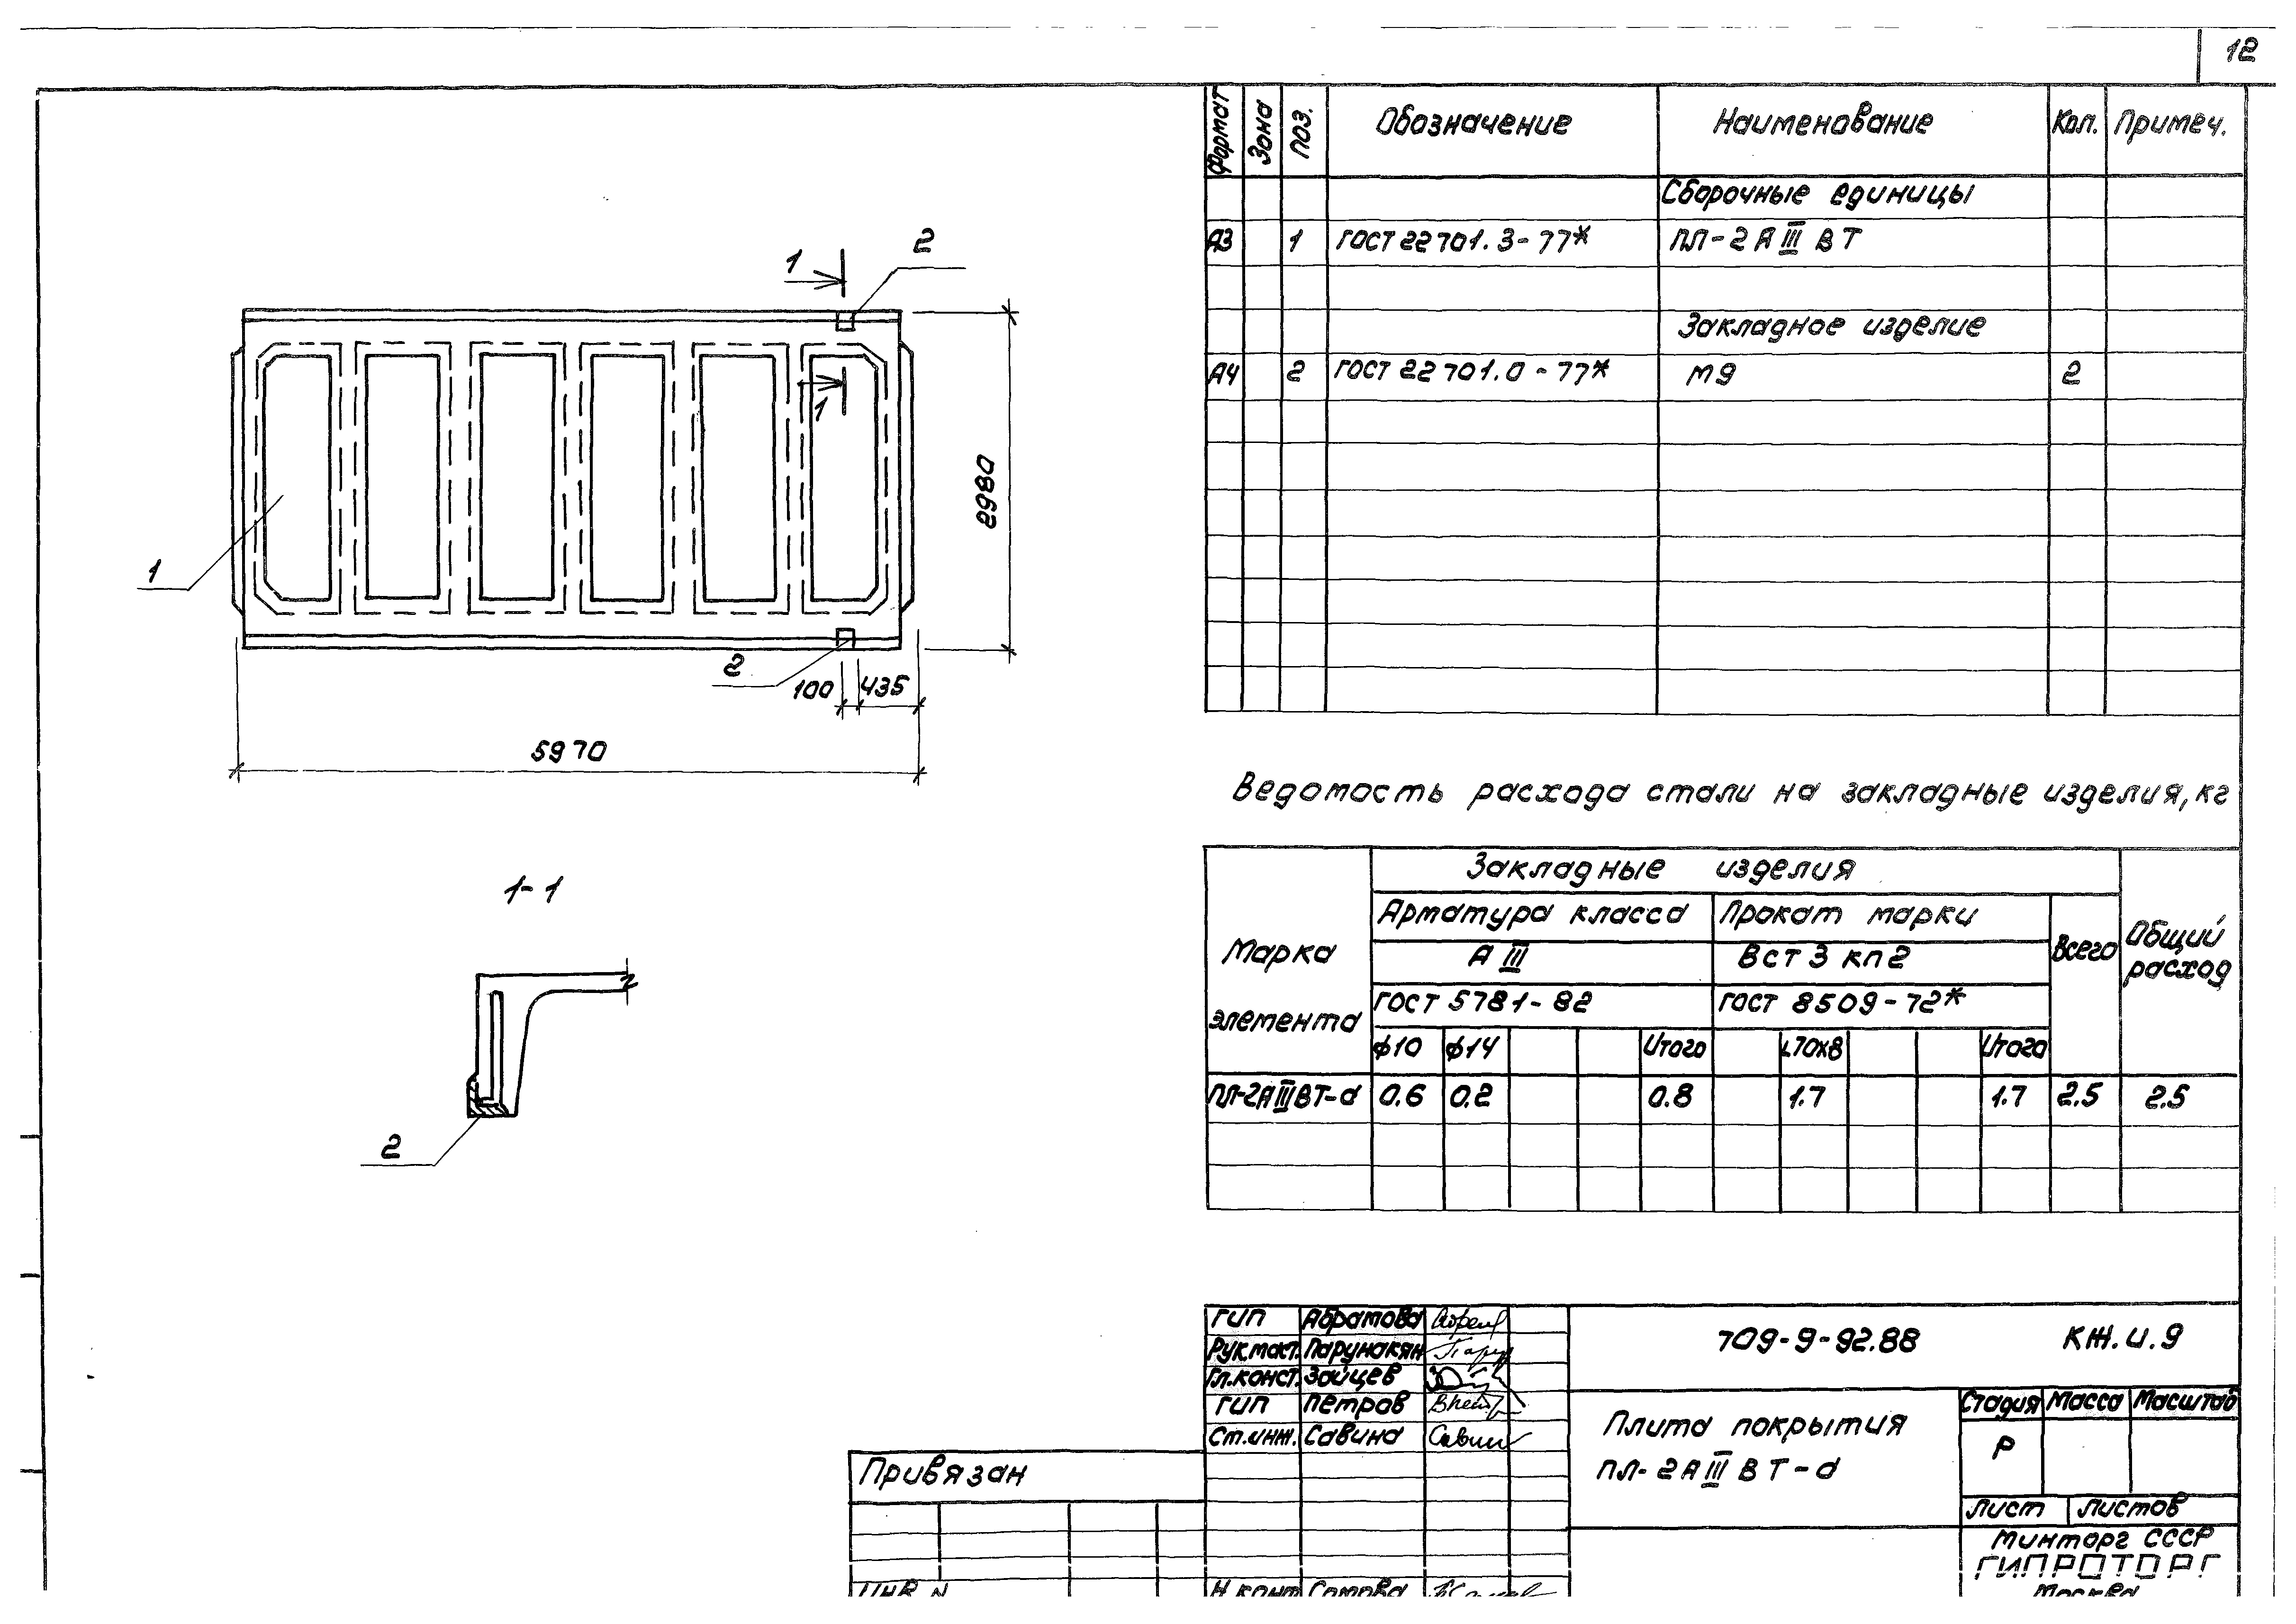 12
Формат Зона Поз. Обозначение Наименование Кол. Примеч.
Сборочные единицы
А3 1 ГОСТ 22701.3-77* ПЛ-2АIIIВТ
Закладное изделие
А4 2 ГОСТ 22701.0-77* М9 2
1
2
1
1
2980
2
100 435
5970
1-1
2
Ведомость расхода стали на закладные изделия, кг
Марка элемента
Закладные изделия
Арматура класса Прокат марки
Всего
Общий расход
АIII ВСт3кп2
ГОСТ 5781-82 ГОСТ 8509-72*
ф10 ф14 Итого L70х8 Итого
ПЛ-2АIIIВТ-а 0.6 0.2 0.8 1.7 1.7 2.5 2.5
ГИП Абрамова
Рук.маст. Парунакян
Гл.конст. Зайцев
ГИП Петров
Ст.инж. Савина Савин
709-9-92.88 КЖ.и.9
Плита покрытия
ПЛ-2АIIIВТ-а
Стадия Масса Масштаб
Р
Лист Листов
Минторг СССР
ГИПРОТОРГ
Москва
Привязан
Инв.N
Н.конт